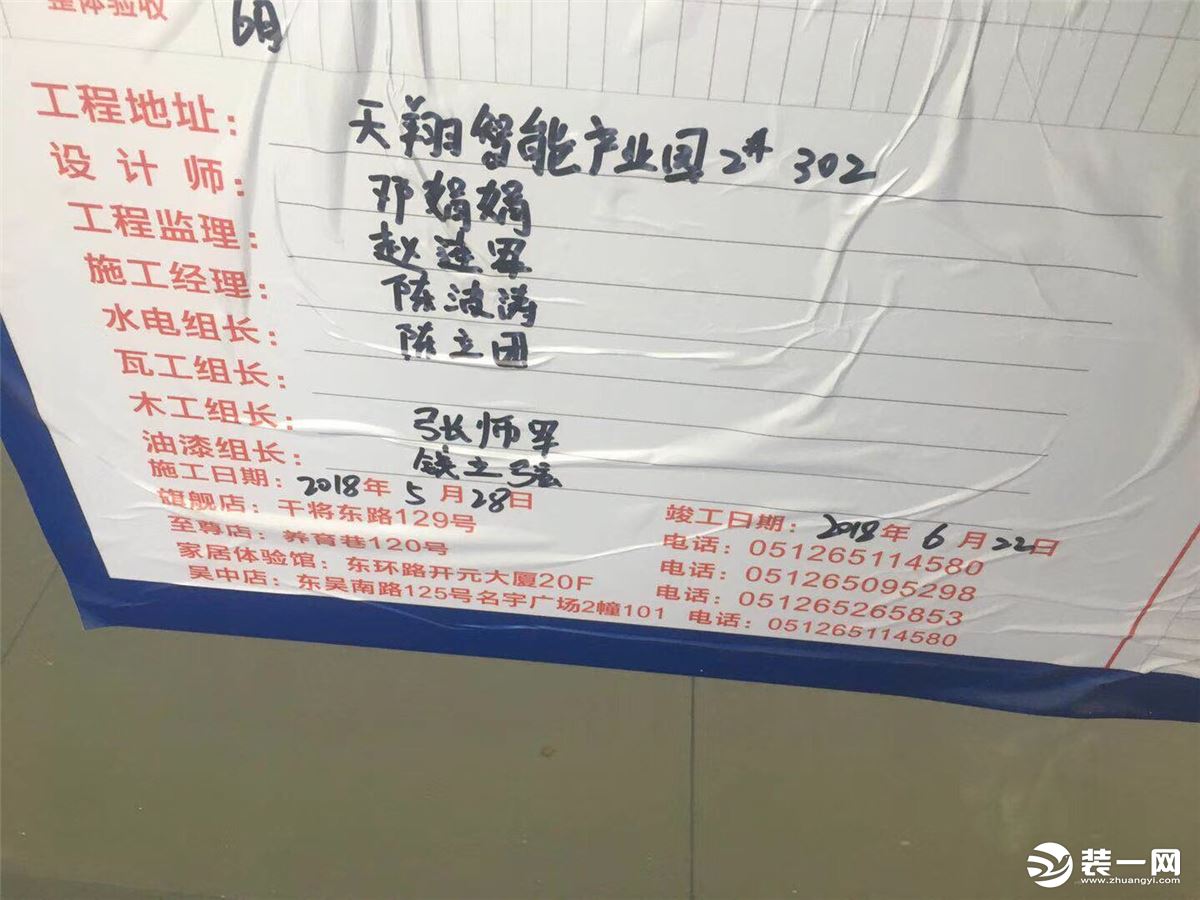 整体验收 6月
工程地址： 天翔智能产业园2# 302
设计师： 邓娟娟
工程监理： 赵连军
施工经理： 陈波涛
水电组长： 陈立团
瓦工组长：
木工组长： 张师军
油漆组长：
施工日期：2018年5月28日 竣工日期：2018年6月22日
旗舰店：干将东路129号 电话：051265114580
至尊店：养育巷120号 电话：051265095298
家居体验馆：东环路开元大厦20F 电话：051265265853
吴中店：东吴南路125号名宇广场2幢101 电话：051265114580
装一网
www.zhuangyi.com